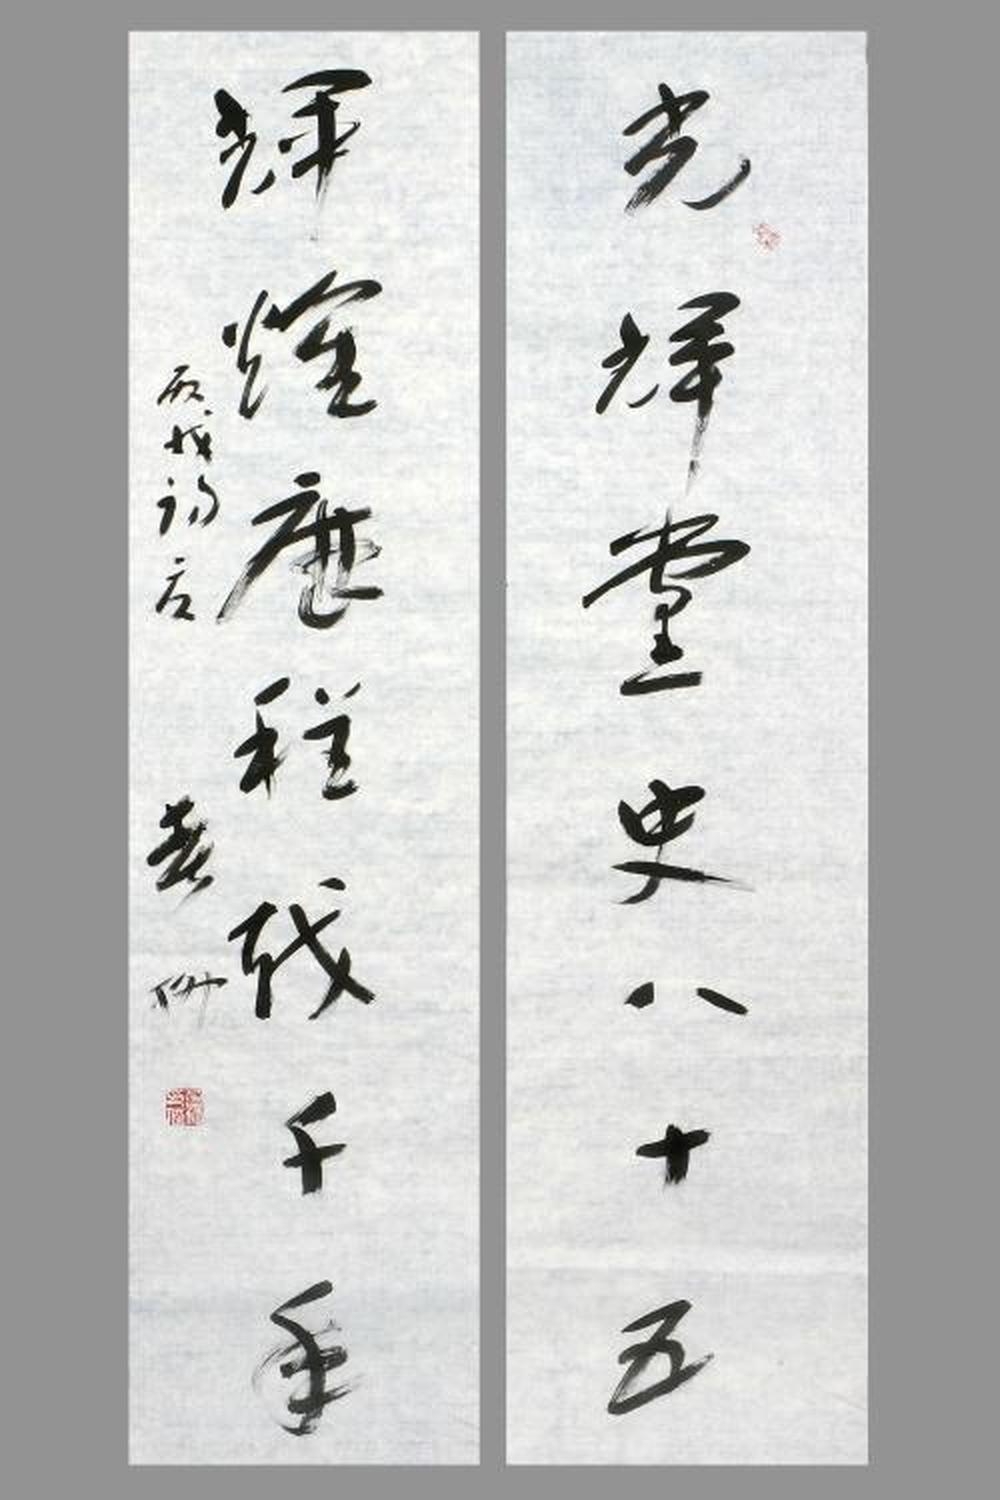 光辉党史八十五
辉煌历程越千年
丙戌
春